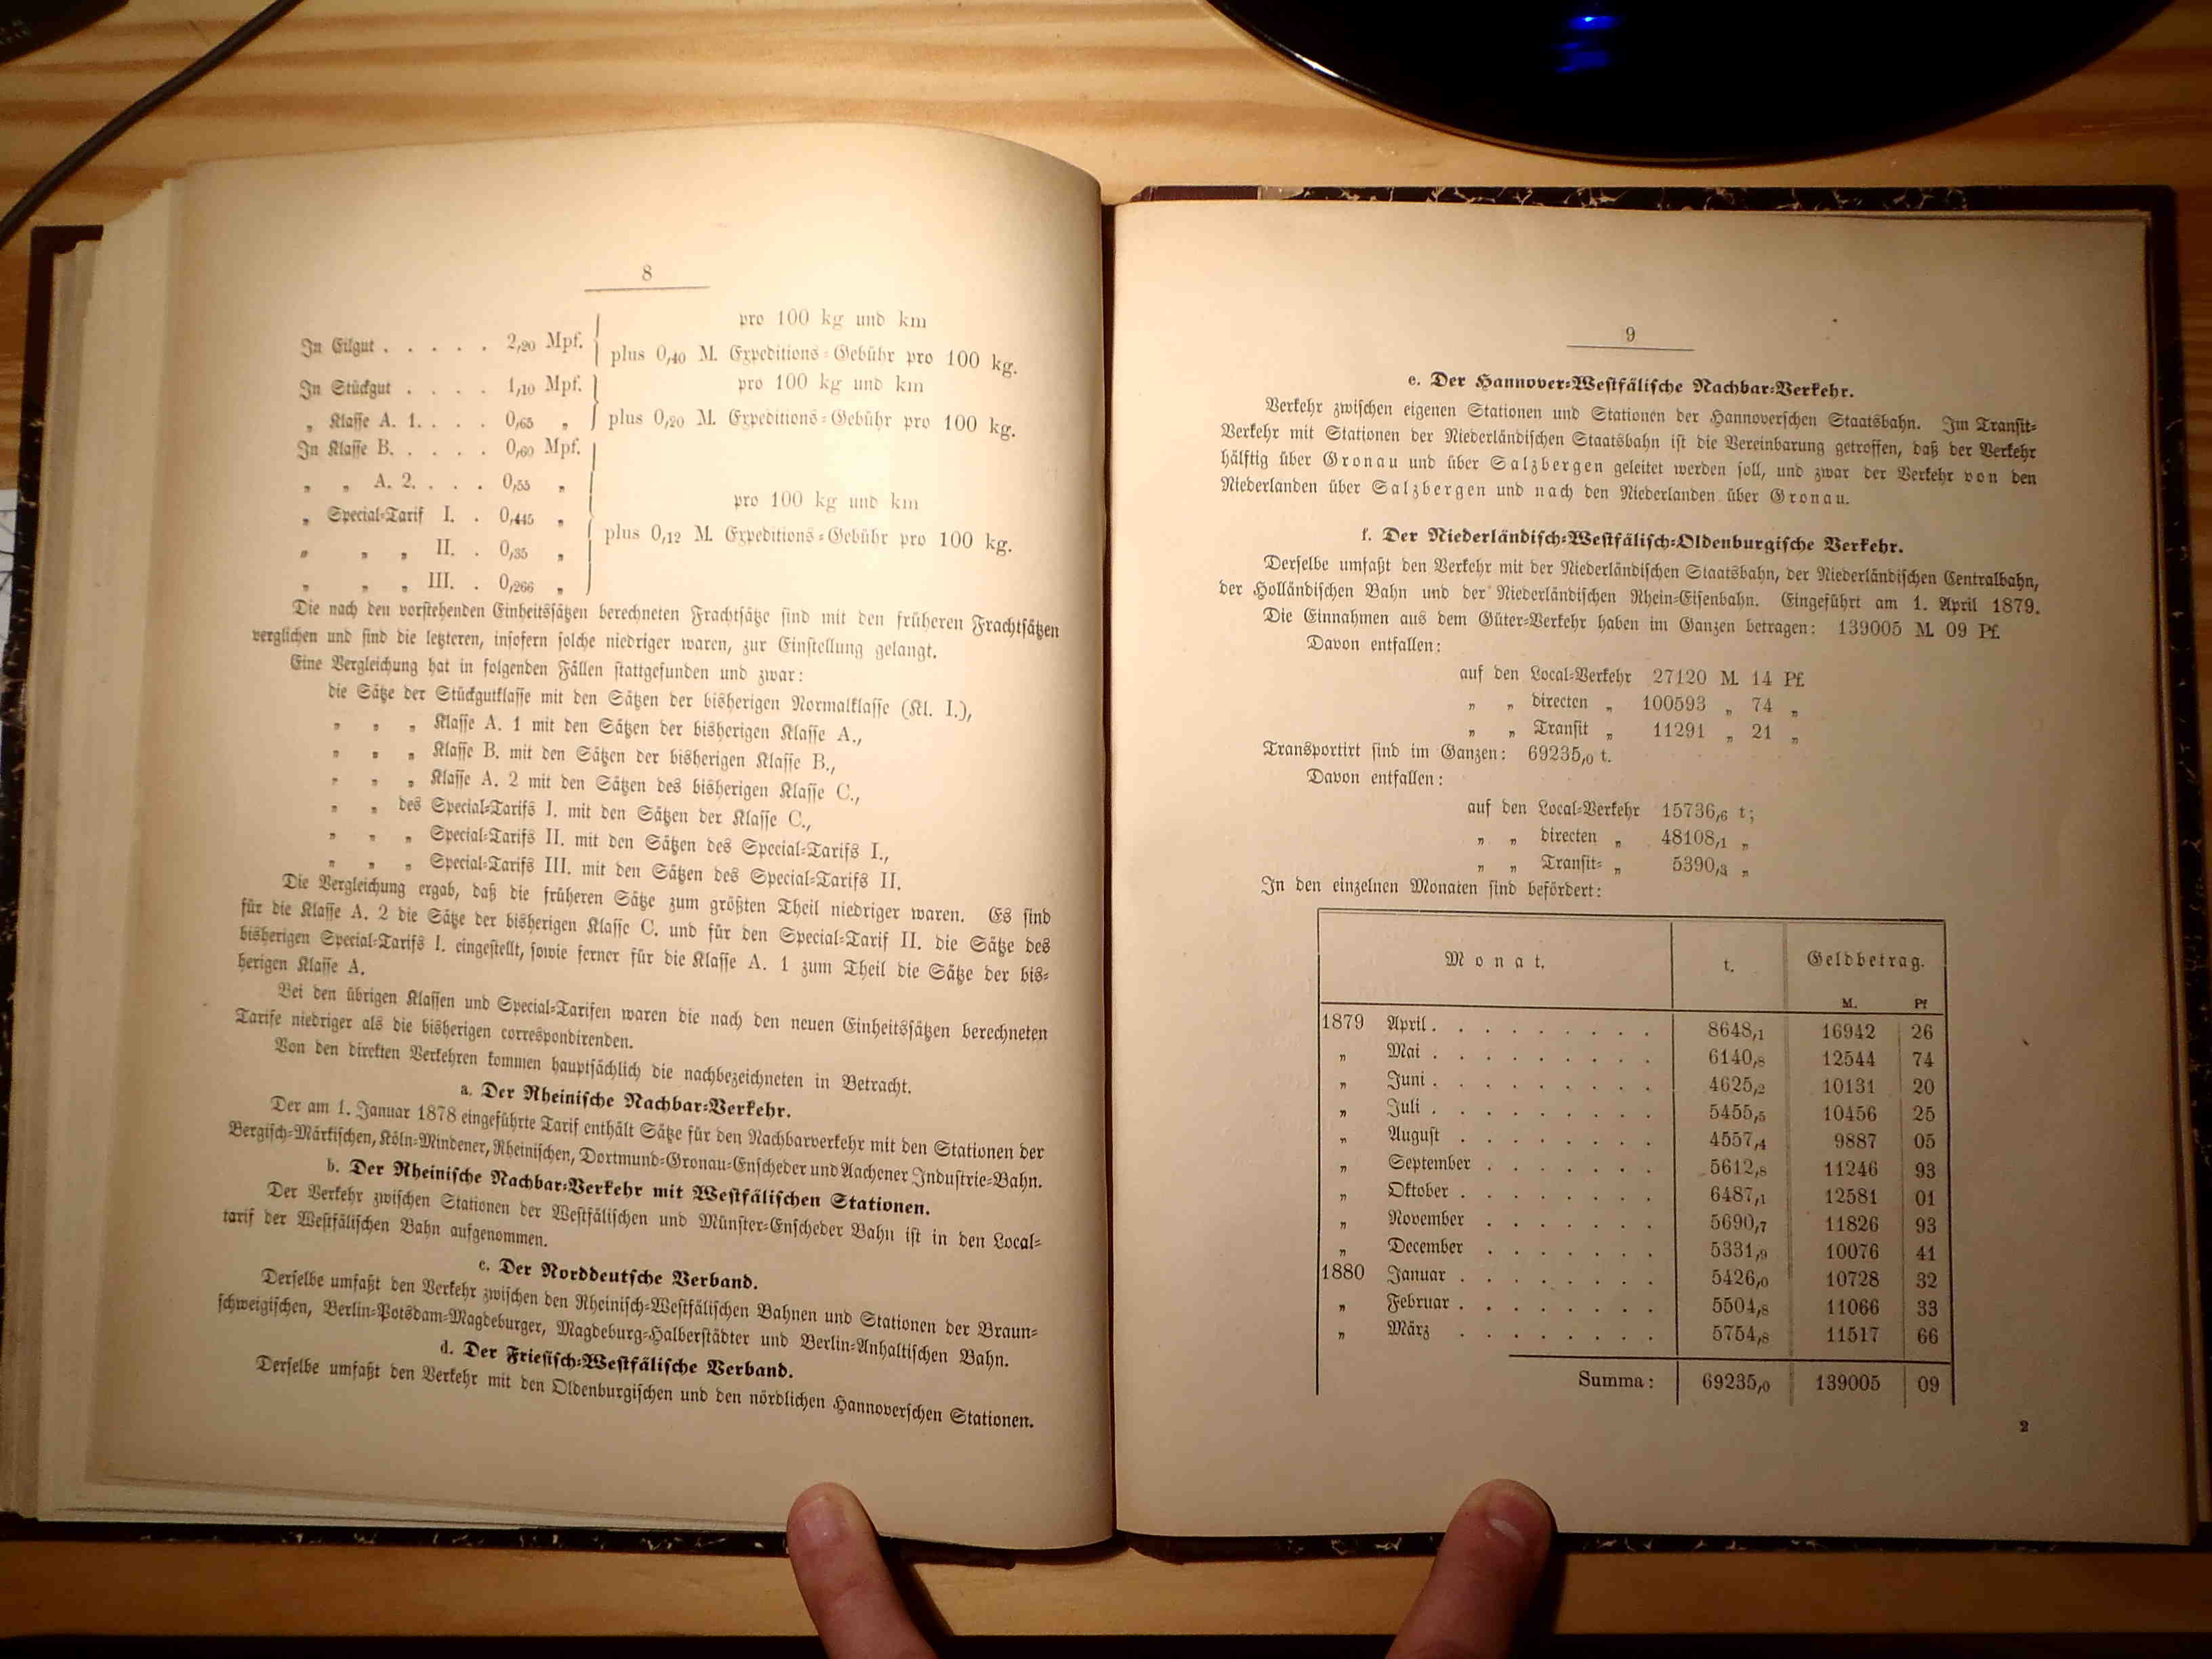 8
pro 100 kg und km
In Eilgut . . . . . 2,20 Mpf.
plus 0,40 M. Expeditions-Gebühr pro 100 kg.
In Stückgut . . . . 1,10 Mpf.
pro 100 kg und km
„ Klasse A. 1. . . . 0,65 „
plus 0,20 M. Expeditions-Gebühr pro 100 kg.
In Klasse B. . . . . 0,60 Mpf.
„ „ A. 2. . . . 0,55 „
pro 100 kg und km
„ Special-Tarif I. . 0,445 „
plus 0,12 M. Expeditions-Gebühr pro 100 kg.
„ „ „ II. . 0,35 „
„ „ „ III. . 0,266 „
Die nach den vorstehenden Einheitssätzen berechneten Frachtsätze sind mit den früheren Frachtsätzen
verglichen und sind die letzteren, insofern solche niedriger waren, zur Einstellung gelangt.
Eine Vergleichung hat in folgenden Fällen stattgefunden und zwar:
die Sätze der Stückgutklasse mit den Sätzen der bisherigen Normalklasse (Kl. I.),
„ „ „ Klasse A. 1 mit den Sätzen der bisherigen Klasse A.,
„ „ „ Klasse B. mit den Sätzen der bisherigen Klasse B.,
„ „ „ Klasse A. 2 mit den Sätzen des bisherigen Klasse C.,
„ „ des Special-Tarifs I. mit den Sätzen der Klasse C.,
„ „ „ Special-Tarifs II. mit den Sätzen des Special-Tarifs I.,
„ „ „ Special-Tarifs III. mit den Sätzen des Special-Tarifs II.
Die Vergleichung ergab, daß die früheren Sätze zum größten Theil niedriger waren. Es sind
für die Klasse A. 2 die Sätze der bisherigen Klasse C. und für den Special-Tarif II. die Sätze des
bisherigen Special-Tarifs I. eingestellt, sowie ferner für die Klasse A. 1 zum Theil die Sätze der bis-
herigen Klasse A.
Bei den übrigen Klassen und Special-Tarifen waren die nach den neuen Einheitssätzen berechneten
Tarife niedriger als die bisherigen correspondirenden.
Von den direkten Verkehren kommen hauptsächlich die nachbezeichneten in Betracht.
a. Der Rheinische Nachbar-Verkehr.
Der am 1. Januar 1878 eingeführte Tarif enthält Sätze für den Nachbarverkehr mit den Stationen der
Bergisch-Märkischen, Köln-Mindener, Rheinischen, Dortmund-Gronau-Enscheder und Aachener Industrie-Bahn.
b. Der Rheinische Nachbar-Verkehr mit Westfälischen Stationen.
Der Verkehr zwischen Stationen der Westfälischen und Münster-Enscheder Bahn ist in den Local-
tarif der Westfälischen Bahn aufgenommen.
c. Der Norddeutsche Verband.
Derselbe umfaßt den Verkehr zwischen den Rheinisch-Westfälischen Bahnen und Stationen der Braun-
schweigischen, Berlin-Potsdam-Magdeburger, Magdeburg-Halberstädter und Berlin-Anhaltischen Bahn.
d. Der Friesisch-Westfälische Verband.
Derselbe umfaßt den Verkehr mit den Oldenburgischen und den nördlichen Hannoverschen Stationen.
9
e. Der Hannover-Westfälische Nachbar-Verkehr.
Verkehr zwischen eigenen Stationen und Stationen der Hannoverschen Staatsbahn. Im Transit-
Verkehr mit Stationen der Niederländischen Staatsbahn ist die Vereinbarung getroffen, daß der Verkehr
hälftig über Gronau und über Salzbergen geleitet werden soll, und zwar der Verkehr von den
Niederlanden über Salzbergen und nach den Niederlanden über Gronau.
f. Der Niederländisch-Westfälisch-Oldenburgische Verkehr.
Derselbe umfaßt den Verkehr mit der Niederländischen Staatsbahn, der Niederländischen Centralbahn,
der Holländischen Bahn und der Niederländischen Rhein-Eisenbahn. Eingeführt am 1. April 1879.
Die Einnahmen aus dem Güter-Verkehr haben im Ganzen betragen: 139005 M. 09 Pf.
Davon entfallen:
auf den Local-Verkehr 27120 M. 14 Pf.
„ „ directen „ 100593 „ 74 „
„ „ Transit „ 11291 „ 21 „
Transportirt sind im Ganzen: 69235,0 t.
Davon entfallen:
auf den Local-Verkehr 15736,6 t;
„ „ directen „ 48108,1 „
„ „ Transit- „ 5390,3 „
In den einzelnen Monaten sind befördert:
Monat. t. Geldbetrag.
M. Pf
1879 April . . . . . . . . . 8648,1 16942 26
„ Mai . . . . . . . . . 6140,8 12544 74
„ Juni . . . . . . . . . 4625,2 10131 20
„ Juli . . . . . . . . . 5455,5 10456 25
„ August . . . . . . . . 4557,4 9887 05
„ September . . . . . . . 5612,8 11246 93
„ Oktober . . . . . . . . 6487,1 12581 01
„ November . . . . . . . 5690,7 11826 93
„ December . . . . . . . 5331,9 10076 41
1880 Januar . . . . . . . . 5426,0 10728 32
„ Februar . . . . . . . . 5504,8 11066 33
„ März . . . . . . . . 5754,8 11517 66
Summa: 69235,0 139005 09
2